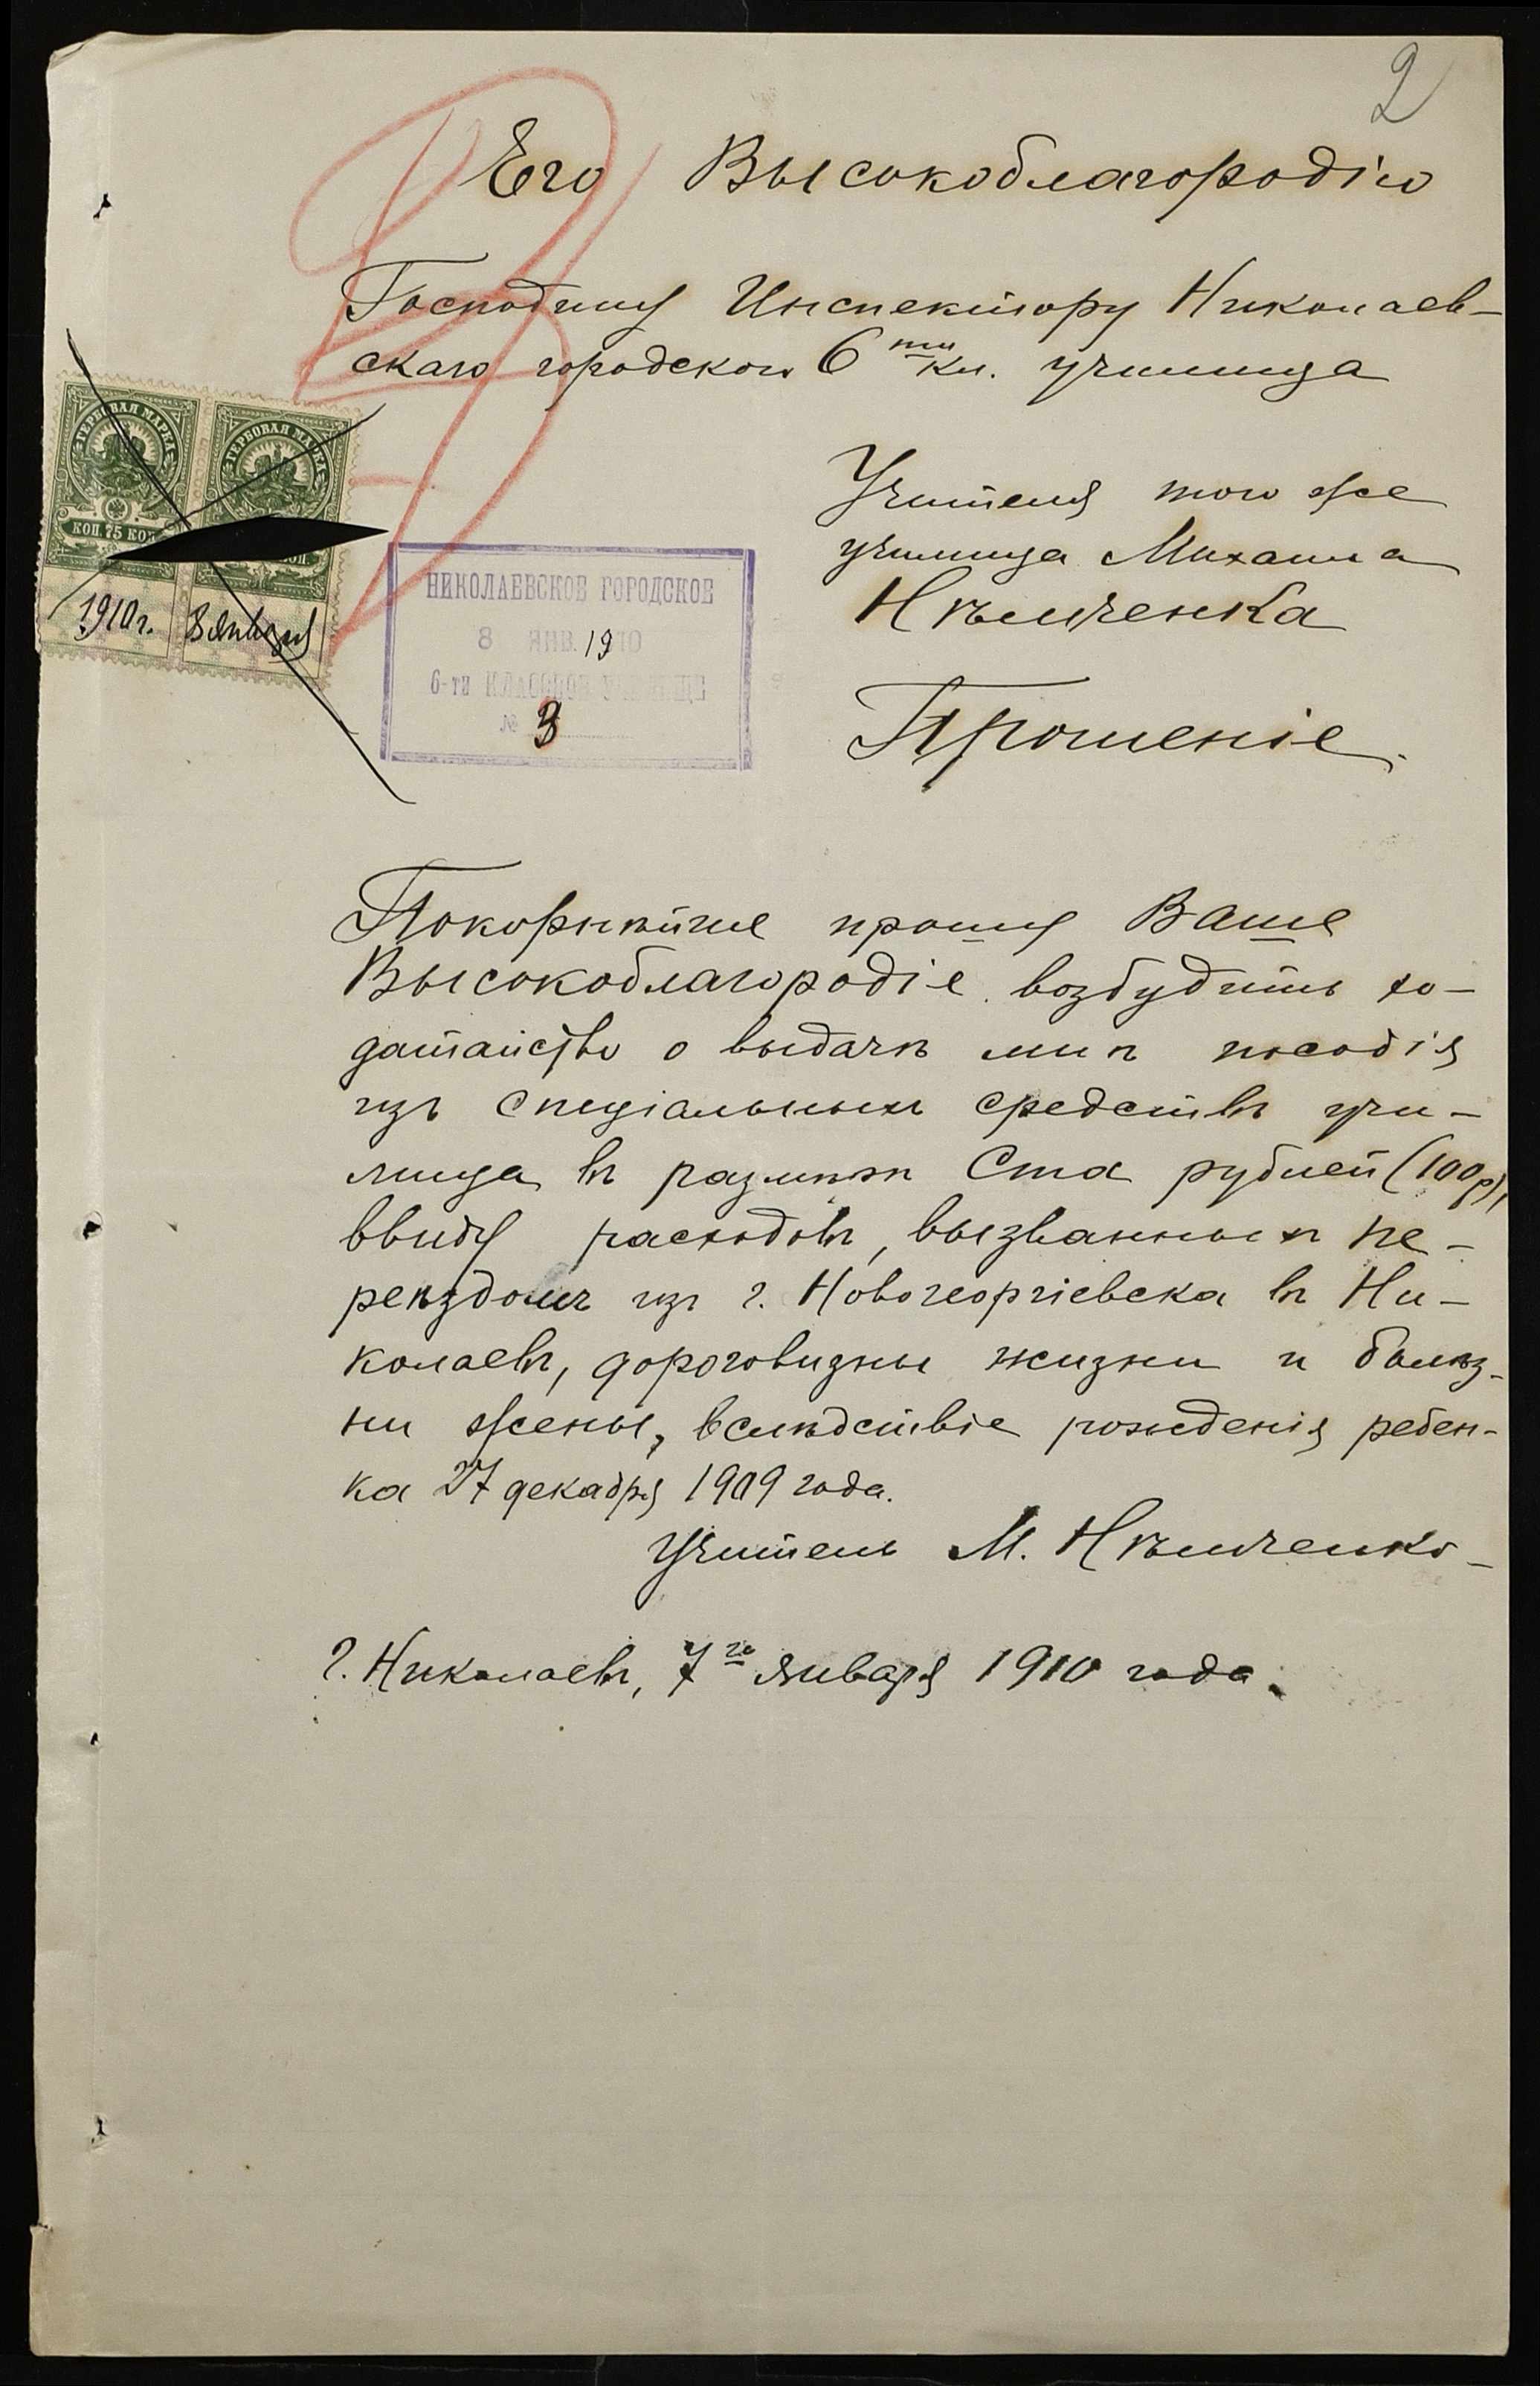 2
Его Высокоблагородію
Господину Инспектору Николаев-
скаго городского 6ти кл. училища
Учителя того же
училища Михаила
Нѣмченка
Прошеніе.
ГЕРБОВАЯ МАРКА ГЕРБОВАЯ МАРКА
КОП. 75 КОП.
1910 г. 8 января
НИКОЛАЕВСКОЕ ГОРОДСКОЕ
8 ЯНВ. 1910
6-ти КЛАССНОЕ УЧИЛИЩЕ
№ 3
Покорнѣйше прошу Ваше
Высокоблагородіе возбудить хо-
датайство о выдачѣ мнѣ пособія
изъ спеціальныхъ средствъ учи-
лища въ размѣрѣ Ста рублей (100 р),
ввиду расходовъ, вызванныхъ пе-
реѣздомъ изъ г. Новогеоргіевска въ Ни-
колаевъ, дороговизны жизни и болѣз-
ни жены, вслѣдствіе рожденія ребен-
ка 27 декабря 1909 года.
Учитель М. Нѣмченко
г. Николаевъ, 7го января 1910 года.